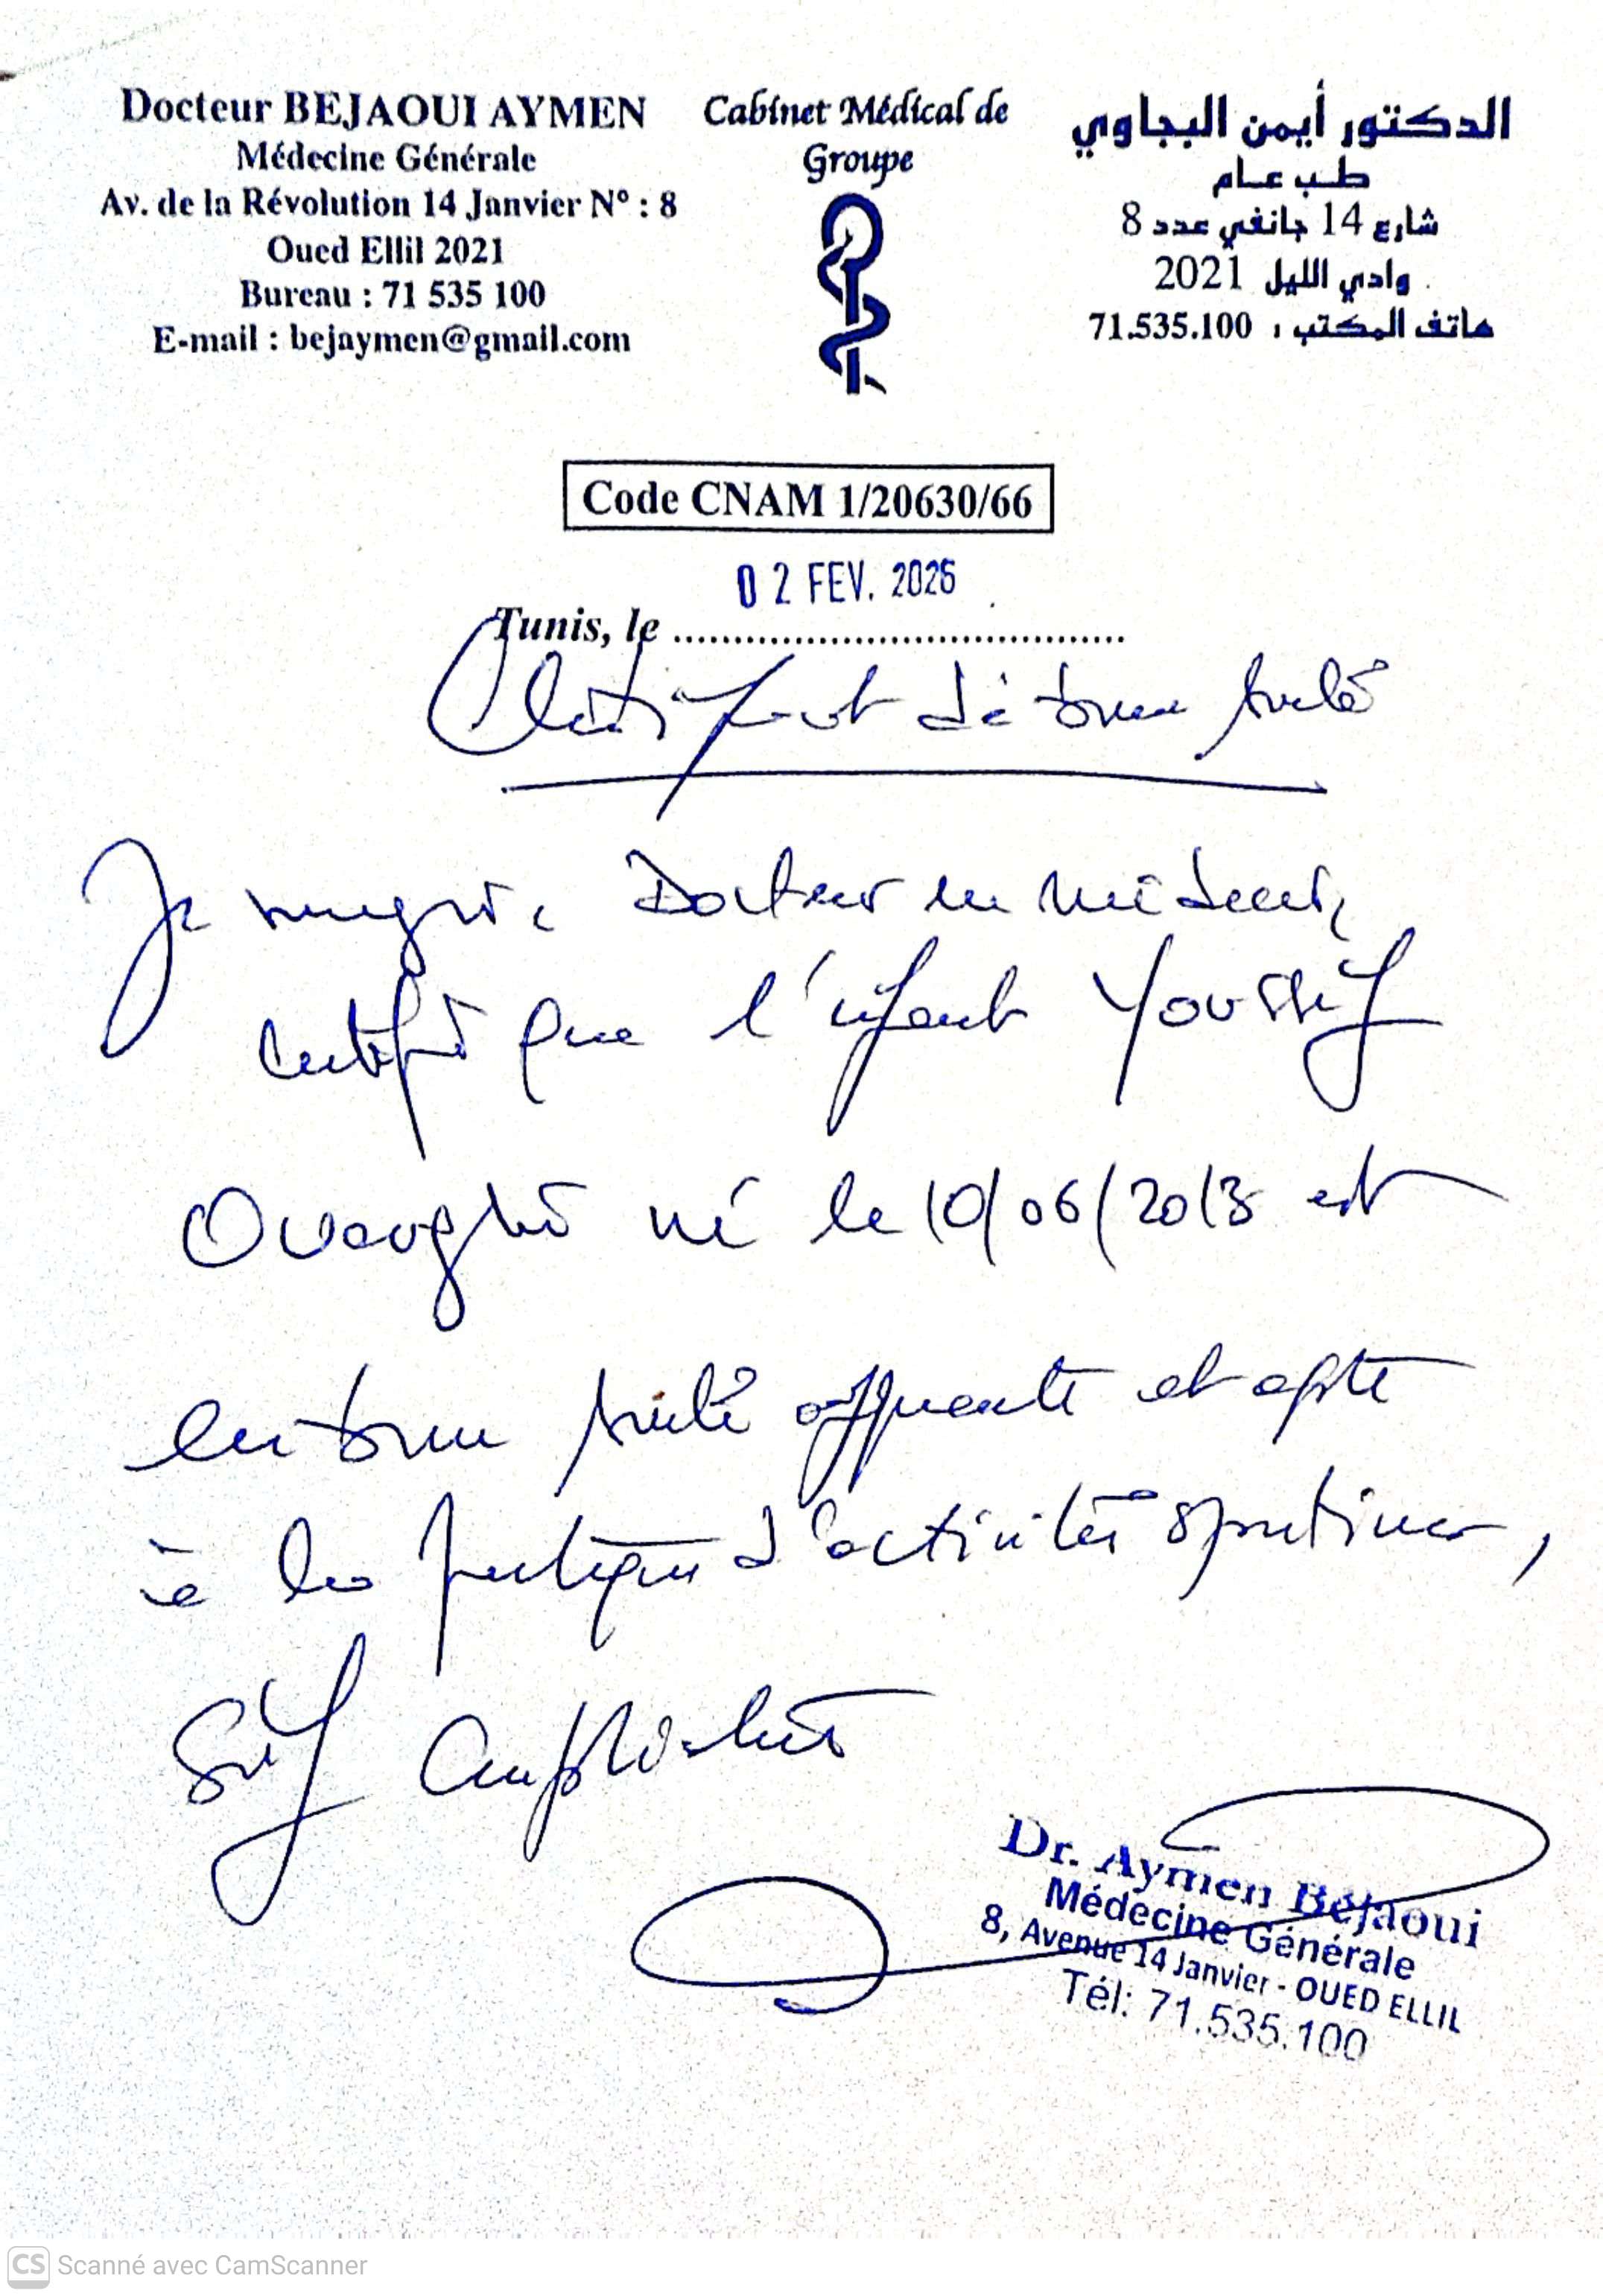 Docteur BEJAOUI AYMEN
Médecine Générale
Av. de la Révolution 14 Janvier N° : 8
Oued Ellil 2021
Bureau : 71 535 100
E-mail : bejaymen@gmail.com
Cabinet Médical de
Groupe
الدكتور أيمن البجاوي
طب عام
شارع 14 جانفي عدد 8
وادي الليل 2021
هاتف المكتب : 71.535.100
Code CNAM 1/20630/66
02 FEV. 2026
Tunis, le
Certificat de bonne santé
Je soussigné, Docteur en médecine,
certifie que l'enfant Youssef
né le 10/06/2013 est
en bonne santé apparente et apte
à la pratique d'activités sportives,
Sauf complications
Dr. Aymen Béjaoui
Médecine Générale
8, Avenue 14 Janvier - OUED ELLIL
Tél: 71.535.100
CS Scanné avec CamScanner